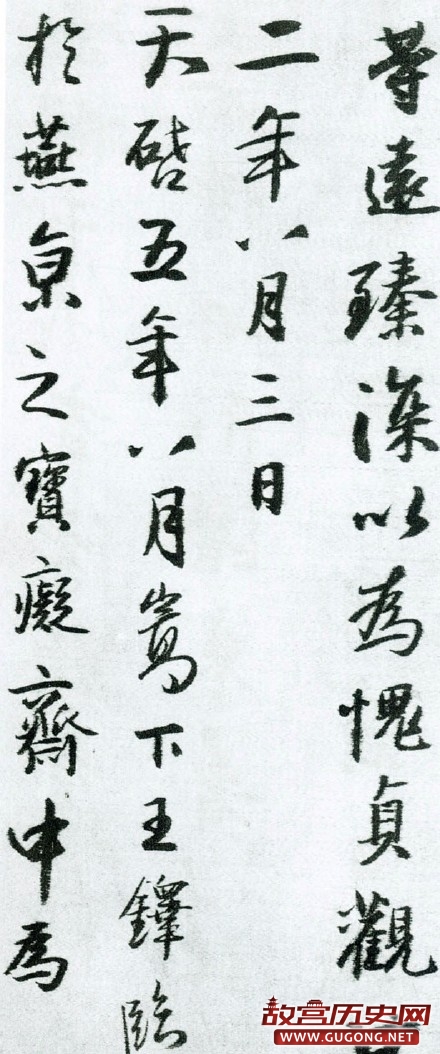 等遠臻深以為愧貞觀
二年八月三日
天啓五年八月嵩下王鐸臨
於燕京之寶癡齋中為
故宫历史网
WWW.GUGONG.NET